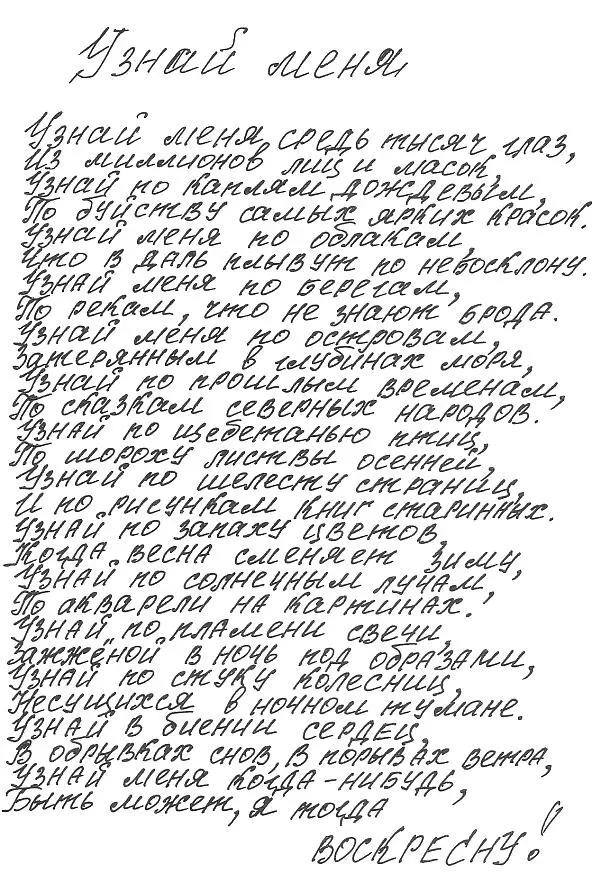 Узнай меня
Узнай меня средь тысяч глаз,
Из миллионов лиц и масок,
Узнай по каплям дождевым,
По буйству самых ярких красок.
Узнай меня по облакам,
Что в даль плывут по небосклону.
Узнай меня по берегам,
По рекам, что не знают брода.
Узнай меня по островам,
Затерянным в глубинах моря,
Узнай по прошлым временам,
По сказкам северных народов.
Узнай по щебетанью птиц,
По шороху листвы осенней,
Узнай по шелесту страниц,
И по рисункам книг старинных.
Узнай по запаху цветов,
Когда весна сменяет зиму,
Узнай по солнечным лучам,
По акварели на картинах.
Узнай по пламени свечи,
Зажжёной в ночь под образами,
Узнай по стуку колесниц,
Несущихся в ночном тумане.
Узнай в биении сердец,
В обрывках снов, в порывах ветра,
Узнай меня когда-нибудь,
Быть может, я тогда
воскресну!